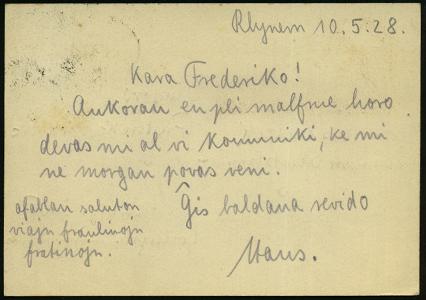 Rhynern 10.5.28.
Kara Frederiko!
Ankoraŭ en pli malfrue horo
devas mi al vi komuniki, ke mi
ne morgaŭ povas veni.
Ĝis baldaŭa revido
Hans.
afablan saluton
viajn fraulinojn
fratinojn.